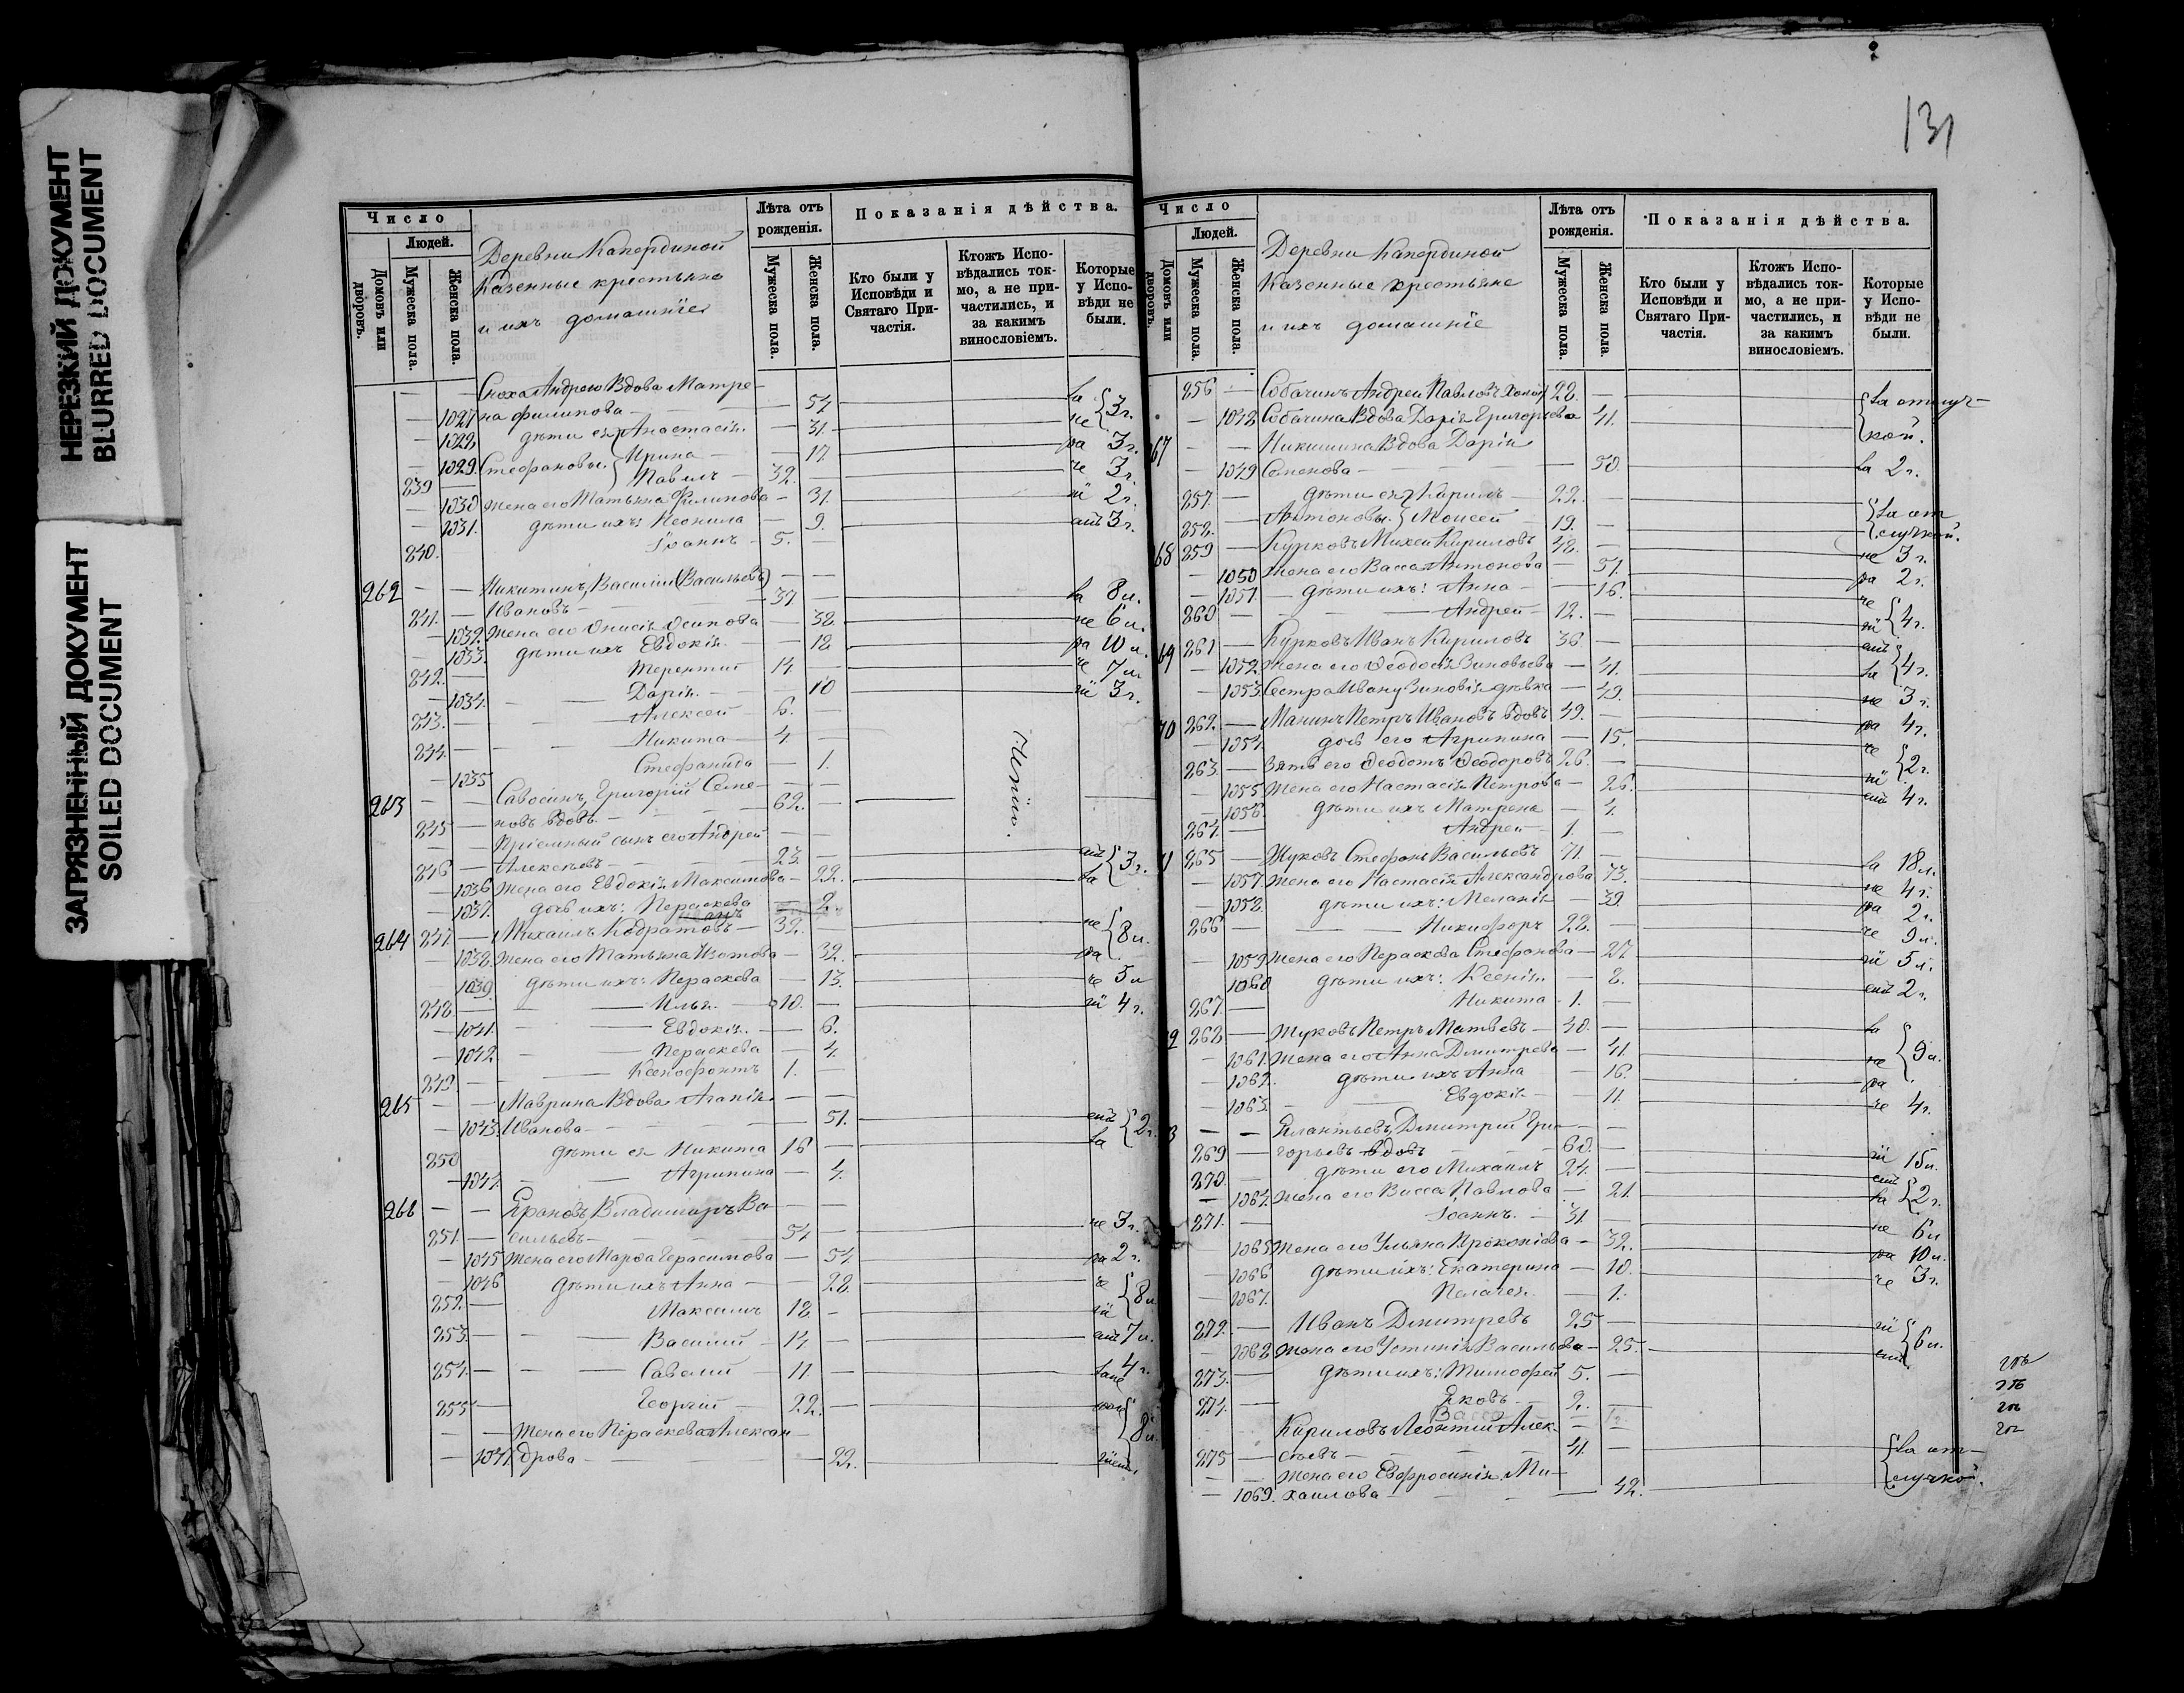 НЕРЕЗКИЙ ДОКУМЕНТ
BLURRED DOCUMENT
ЗАГРЯЗНЕННЫЙ ДОКУМЕНТ
SOILED DOCUMENT
Число
Людей.
Домовъ или дворовъ.
Мужеска пола.
Женска пола.
Деревни Капердиной
Казенные крестьяне
и ихъ домашніе
Лѣта отъ рожденія.
Мужеска пола.
Женска пола.
Показанія дѣйства.
Кто были у Исповѣди и Святаго Причастія.
Ктожъ Исповѣдались токмо, а не причастились, и за какимъ винословіемъ.
Которые у Исповѣди не были.
Сноха Андрею Вдова Матре-
1027 на Филипова — 54
1028 дѣти ея Анастасія — 31.
1029. Стефановы. Ирина — 17
239 Павелъ — 32.
1030 Жена его Татьяна Филипова — 31.
1031. дѣти ихъ: Неонила — 9.
240. Іоаннъ — 5.
262 Никитинъ, Василій (Васильевъ)
241. Ивановъ — 37
1032. Жена его Онисія Осипова — 38
1033. дѣти ихъ Евдокія — 18
242. Терентій 14
1034. Дарія — 10
243. Алексей — 6.
244. Никита — 4.
1035 Стефанида — 1.
263 Савосинъ, Григорій Семе-
245 новъ вдовъ — 62.
Пріемный сынъ его Андрей
246 Алексѣевъ — 23.
1036 Жена его Евдокія Максимова — 22.
1037. дочь ихъ: Пераскева — 2.
264 247 Михаилъ Кодратовъ — 32.
1038. Жена его Татьяна Изотова — 32.
1039. дѣти ихъ: Пераскева — 13.
248. Илья — 10.
1041. Евдокія — 6.
1042 Пераскева — 4.
249. Ксенофонтъ 1.
265 Маврина Вдова Агапія
1043. Иванова — 51.
250 дѣти ея Никита 16
1044. Агрипина — 4.
266 Ероновъ, Владимиръ Ва-
251. сильевъ — 54
1045 Жена его Марѳа Герасимова — 54
1046 дѣти ихъ Анна — 22.
252. Максимъ 18
253. Василій — 14
254. Савелій — 11.
255 Георгій — 22.
Жена его Пераскева Алексан-
1047 дрова — 22.
131
Число
Людей.
Домовъ или дворовъ.
Мужеска пола.
Женска пола.
Деревни Капердиной
Казенные крестьяне
и ихъ домашніе
Лѣта отъ рожденія.
Мужеска пола.
Женска пола.
Показанія дѣйства.
Кто были у Исповѣди и Святаго Причастія.
Ктожъ Исповѣдались токмо, а не причастились, и за какимъ винословіемъ.
Которые у Исповѣди не были.
256 Собачинъ Андрей Павловъ 22.
1048 Собачина Вдова Дарія Григорьева 41.
67 Никишина Вдова Дарія
1049 Семенова — 50.
257. дѣти ея Кирилъ 22.
258. Антоновы. Моисей 19.
68 259 Курковъ Михей Кириловъ 48.
1050 Жена его Васса Антонова — 51.
1051. дѣти ихъ: Анна — 16.
260 Андрей 12.
69 261 Курковъ Иванъ Кириловъ 36
1052. Жена его Ѳеодосія Зиновьева — 41.
1053 Сестра Ивану Зиновія дѣвка — 49.
70 262. Манинъ Петръ Ивановъ вдовъ 49.
1054. дочь его Агрипина — 15.
263. Зять его Ѳеодотъ Ѳеодоровъ 26.
1055 Жена его Настасія Петрова — 26.
1056. дѣти ихъ Матрена — 4.
264. Андрей 1.
265 Жуковъ Стефанъ Васильевъ 71.
1057. Жена его Настасія Александрова 73.
1058. дѣти ихъ: Меланія — 39.
266 Никифоръ 28.
1059 Жена его Пераскева Стефанова — 27
1060 дѣти ихъ: Ксенія — 2.
267. Никита 1.
268 Жуковъ Петръ Матвѣевъ 40.
1061. Жена его Анна Дмитрева — 41.
1062. дѣти ихъ Анна — 16.
1063. Евдокія — 11.
Елантьевъ, Дмитрій Гри-
269 горьевъ вдовъ — 60.
270. дѣти его Михаилъ 24.
1064. Жена его Васса Павлова — 21.
271. Іоаннъ. 31.
1065 Жена его Ульяна Прокопіева — 32.
1066 дѣти ихъ: Екатерина — 10.
1067. Пелагея — 1.
272. Иванъ Дмитревъ 25
1068 Жена его Устинія Васильева — 25.
273. дѣти ихъ: Тимофей 5.
274. Яковъ 2.
Васса
Кириловъ Леонтій Алек-
275 сѣевъ — 41.
Жена его Евфросинія Ми-
1069. хаилова — 42.